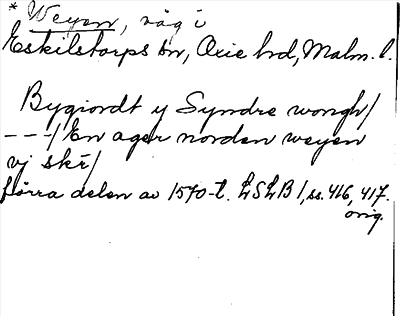 * Weyen, väg i
Eskilstorps sn, Oxie hd, Malm. l.
Bygiordt y Syndre wongh/
---/ En ager norden weyen
vj ske/
förra delen av 1570-t. LSLB 1, ss. 416, 417.
orig.